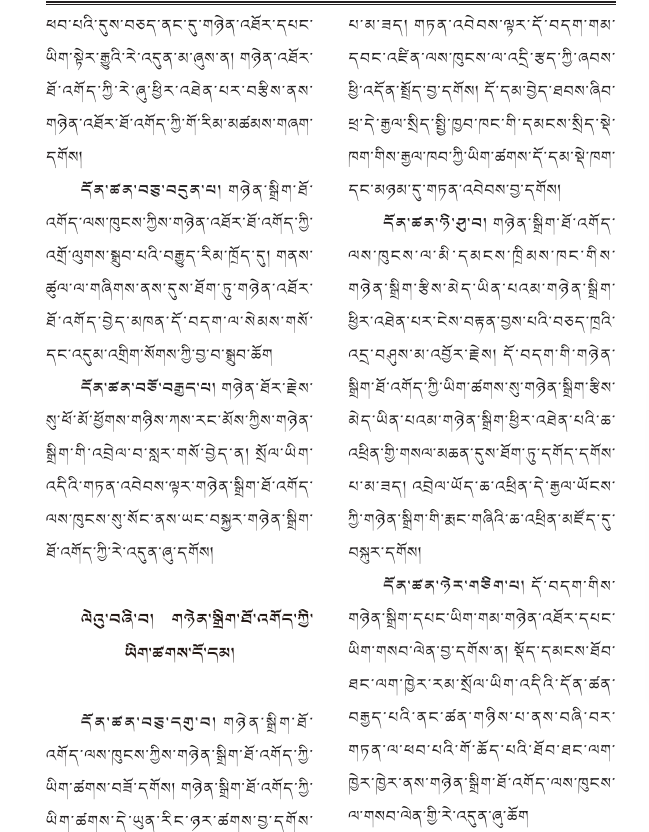 ཕབ་པའི་དུས་བཅད་ནང་དུ་གཉེན་འཐོར་དཔང་
ཡིག་སྟེར་རྒྱུའི་རེ་འདུན་མ་ཞུས་ན། གཉེན་འཐོར་
ཐོ་འགོད་ཀྱི་རེ་ཞུ་ཕྱིར་འཐེན་པར་བརྩིས་ནས་
གཉེན་འཐོར་ཐོ་འགོད་ཀྱི་གོ་རིམ་མཚམས་གཞག་
དགོས།
དོན་ཚན་བཅུ་བདུན་པ། གཉེན་སྒྲིག་ཐོ་
འགོད་ལས་ཁུངས་ཀྱིས་གཉེན་འཐོར་ཐོ་འགོད་ཀྱི་
འགྲོ་ལུགས་སྒྲུབ་པའི་བརྒྱུད་རིམ་ཁྲོད་དུ། གནས་
ཚུལ་ལ་གཞིགས་ནས་དུས་ཐོག་ཏུ་གཉེན་འཐོར་
ཐོ་འགོད་བྱེད་མཁན་དོ་བདག་ལ་སེམས་གསོ་
དང་འདུམ་འགྲིག་སོགས་ཀྱི་བྱ་བ་སྒྲུབ་ཆོག
དོན་ཚན་བཅོ་བརྒྱད་པ། གཉེན་ཐོར་རྗེས་
སུ་ཕོ་མོ་ཕྱོགས་གཉིས་ཀས་རང་མོས་ཀྱིས་གཉེན་
སྒྲིག་གི་འབྲེལ་བ་སླར་གསོ་བྱེད་ན། སྲོལ་ཡིག་
འདིའི་གཏན་འབེབས་ལྟར་གཉེན་སྒྲིག་ཐོ་འགོད་
ལས་ཁུངས་སུ་སོང་ནས་ཡང་བསྐྱར་གཉེན་སྒྲིག་
ཐོ་འགོད་ཀྱི་རེ་འདུན་ཞུ་དགོས།
ལེའུ་བཞི་བ། གཉེན་སྒྲིག་ཐོ་འགོད་ཀྱི་
ཡིག་ཚགས་དོ་དམ།
དོན་ཚན་བཅུ་དགུ་བ། གཉེན་སྒྲིག་ཐོ་
འགོད་ལས་ཁུངས་ཀྱིས་གཉེན་སྒྲིག་ཐོ་འགོད་ཀྱི་
ཡིག་ཚགས་བཟོ་དགོས། གཉེན་སྒྲིག་ཐོ་འགོད་ཀྱི་
ཡིག་ཚགས་དེ་ཡུན་རིང་ཉར་ཚགས་བྱ་དགོས་
པ་མ་ཟད། གཏན་འབེབས་ལྟར་དོ་བདག་གམ་
དབང་འཛིན་ལས་ཁུངས་ལ་འདྲི་རྩད་ཀྱི་ཞབས་
ཕྱི་འདོན་སྤྲོད་བྱ་དགོས། དོ་དམ་བྱེད་ཐབས་ཞིབ་
ཕྲ་དེ་རྒྱལ་སྲིད་སྤྱི་ཁྱབ་ཁང་གི་དམངས་སྲིད་སྡེ་
ཁག་གིས་རྒྱལ་ཁབ་ཀྱི་ཡིག་ཚགས་དོ་དམ་སྡེ་ཁག་
དང་མཉམ་དུ་གཏན་འབེབས་བྱ་དགོས།
དོན་ཚན་ཉི་ཤུ་བ། གཉེན་སྒྲིག་ཐོ་འགོད་
ལས་ཁུངས་ལ་མི་དམངས་ཁྲིམས་ཁང་གིས་
གཉེན་སྒྲིག་རྩིས་མེད་ཡིན་པའམ་གཉེན་སྒྲིག་
ཕྱིར་འཐེན་པར་ངེས་བརྟན་བྱས་པའི་བཅད་ཁྲའི་
འདྲ་བཤུས་མ་འབྱོར་རྗེས། དོ་བདག་གི་གཉེན་
སྒྲིག་ཐོ་འགོད་ཀྱི་ཡིག་ཚགས་སུ་གཉེན་སྒྲིག་རྩིས་
མེད་ཡིན་པའམ་གཉེན་སྒྲིག་ཕྱིར་འཐེན་པའི་ཆ་
འཕྲིན་གྱི་གསལ་མཆན་དུས་ཐོག་ཏུ་དགོད་དགོས་
པ་མ་ཟད། འབྲེལ་ཡོད་ཆ་འཕྲིན་དེ་རྒྱལ་ཡོངས་
ཀྱི་གཉེན་སྒྲིག་གི་རྨང་གཞིའི་ཆ་འཕྲིན་མཛོད་དུ་
བསྐུར་དགོས།
དོན་ཚན་ཉེར་གཅིག་པ། དོ་བདག་གིས་
གཉེན་སྒྲིག་དཔང་ཡིག་གམ་གཉེན་འཐོར་དཔང་
ཡིག་གསབ་ལེན་བྱ་དགོས་ན། སྡོད་དམངས་ཐོབ་
ཐང་ལག་ཁྱེར་རམ་སྲོལ་ཡིག་འདིའི་དོན་ཚན་
བརྒྱད་པའི་ནང་ཚན་གཉིས་པ་ནས་བཞི་བར་
གཏན་ལ་ཕབ་པའི་གོ་ཆོད་པའི་ཐོབ་ཐང་ལག་
ཁྱེར་ཁྱེར་ནས་གཉེན་སྒྲིག་ཐོ་འགོད་ལས་ཁུངས་
ལ་གསབ་ལེན་གྱི་རེ་འདུན་ཞུ་ཆོག